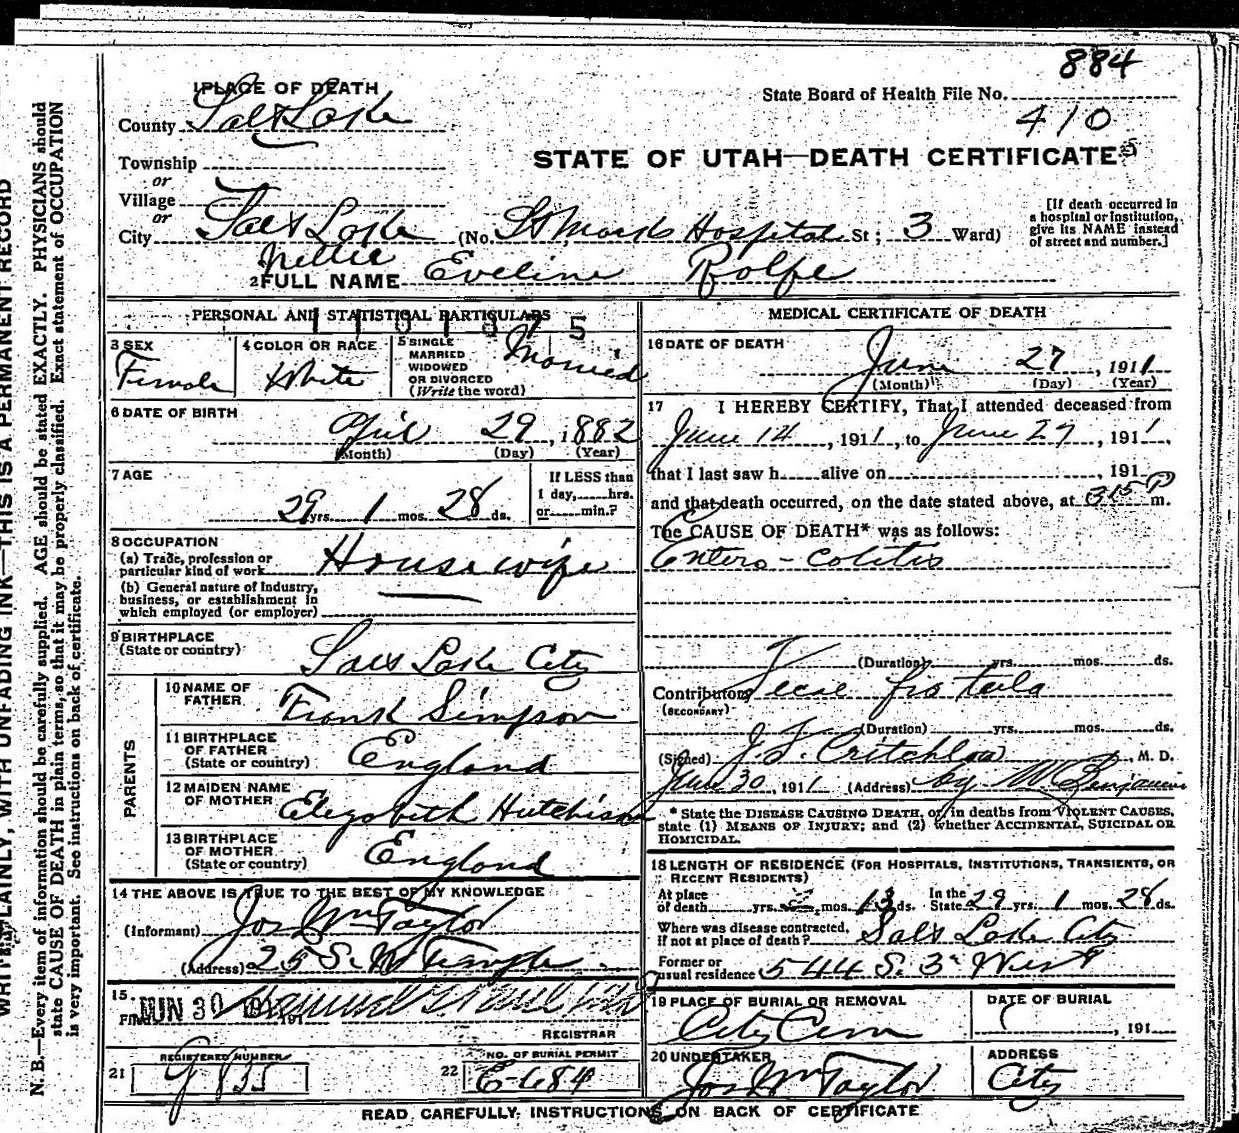 884
1 PLACE OF DEATH
State Board of Health File No.
County Salt Lake
410
Township
STATE OF UTAH—DEATH CERTIFICATE
or
Village
or
City Salt Lake (No. St Marks Hospital St; 3 Ward)
[If death occurred in
a hospital or institution,
give its NAME instead
of street and number.]
2 FULL NAME Nellie Eveline Rolfe
PERSONAL AND STATISTICAL PARTICULARS
3 SEX
Female
4 COLOR OR RACE
White
5 SINGLE
MARRIED
WIDOWED
OR DIVORCED
(Write the word)
Married
6 DATE OF BIRTH
April 29, 1882
(Month) (Day) (Year)
7 AGE
29 yrs. 1 mos. 28 ds.
If LESS than
1 day, hrs.
or min.?
8 OCCUPATION
(a) Trade, profession or
particular kind of work Housewife
(b) General nature of Industry,
business, or establishment in
which employed (or employer)
9 BIRTHPLACE
(State or country)
Salt Lake City
PARENTS
10 NAME OF
FATHER
Frank Simpson
11 BIRTHPLACE
OF FATHER
(State or country)
England
12 MAIDEN NAME
OF MOTHER
Elizabeth Hutchison
13 BIRTHPLACE
OF MOTHER
(State or country)
England
14 THE ABOVE IS TRUE TO THE BEST OF MY KNOWLEDGE
(Informant) Jos Wm Taylor
(Address) 25 S. W Temple
15.
JUN 30 191
REGISTRAR
REGISTERED NUMBER
21 G 835
NO. OF BURIAL PERMIT
22 E-684
MEDICAL CERTIFICATE OF DEATH
16 DATE OF DEATH
June 27, 1911
(Month) (Day) (Year)
17 I HEREBY CERTIFY, That I attended deceased from
June 14, 1911, to June 27, 1911,
that I last saw h alive on , 191
and that death occurred, on the date stated above, at 315 P m.
The CAUSE OF DEATH* was as follows:
Entero-colitis
(Duration) yrs. mos. ds.
Contributory
(SECONDARY)
(Duration) yrs. mos. ds.
(Signed) J. F. Critchlow M. D.
June 30, 1911 (Address) by M. Benjamin
* State the DISEASE CAUSING DEATH, or, in deaths from VIOLENT CAUSES,
state (1) MEANS OF INJURY; and (2) whether ACCIDENTAL, SUICIDAL OR
HOMICIDAL.
18 LENGTH OF RESIDENCE (FOR HOSPITALS, INSTITUTIONS, TRANSIENTS, OR
RECENT RESIDENTS)
At place
of death yrs. mos. 13 ds.
In the
State 29 yrs. 1 mos. 28 ds.
Where was disease contracted,
If not at place of death? Salt Lake City
Former or
usual residence 544 S. 3 West
19 PLACE OF BURIAL OR REMOVAL
City Cem
DATE OF BURIAL
, 191
20 UNDERTAKER
Jos Wm Taylor
ADDRESS
City
READ CAREFULLY, INSTRUCTIONS ON BACK OF CERTIFICATE
WRITE PLAINLY, WITH UNFADING INK—THIS IS A PERMANENT RECORD
N. B.—Every item of information should be carefully supplied. AGE should be stated EXACTLY. PHYSICIANS should
state CAUSE OF DEATH in plain terms, so that it may be properly classified. Exact statement of OCCUPATION
is very important. See instructions on back of certificate.